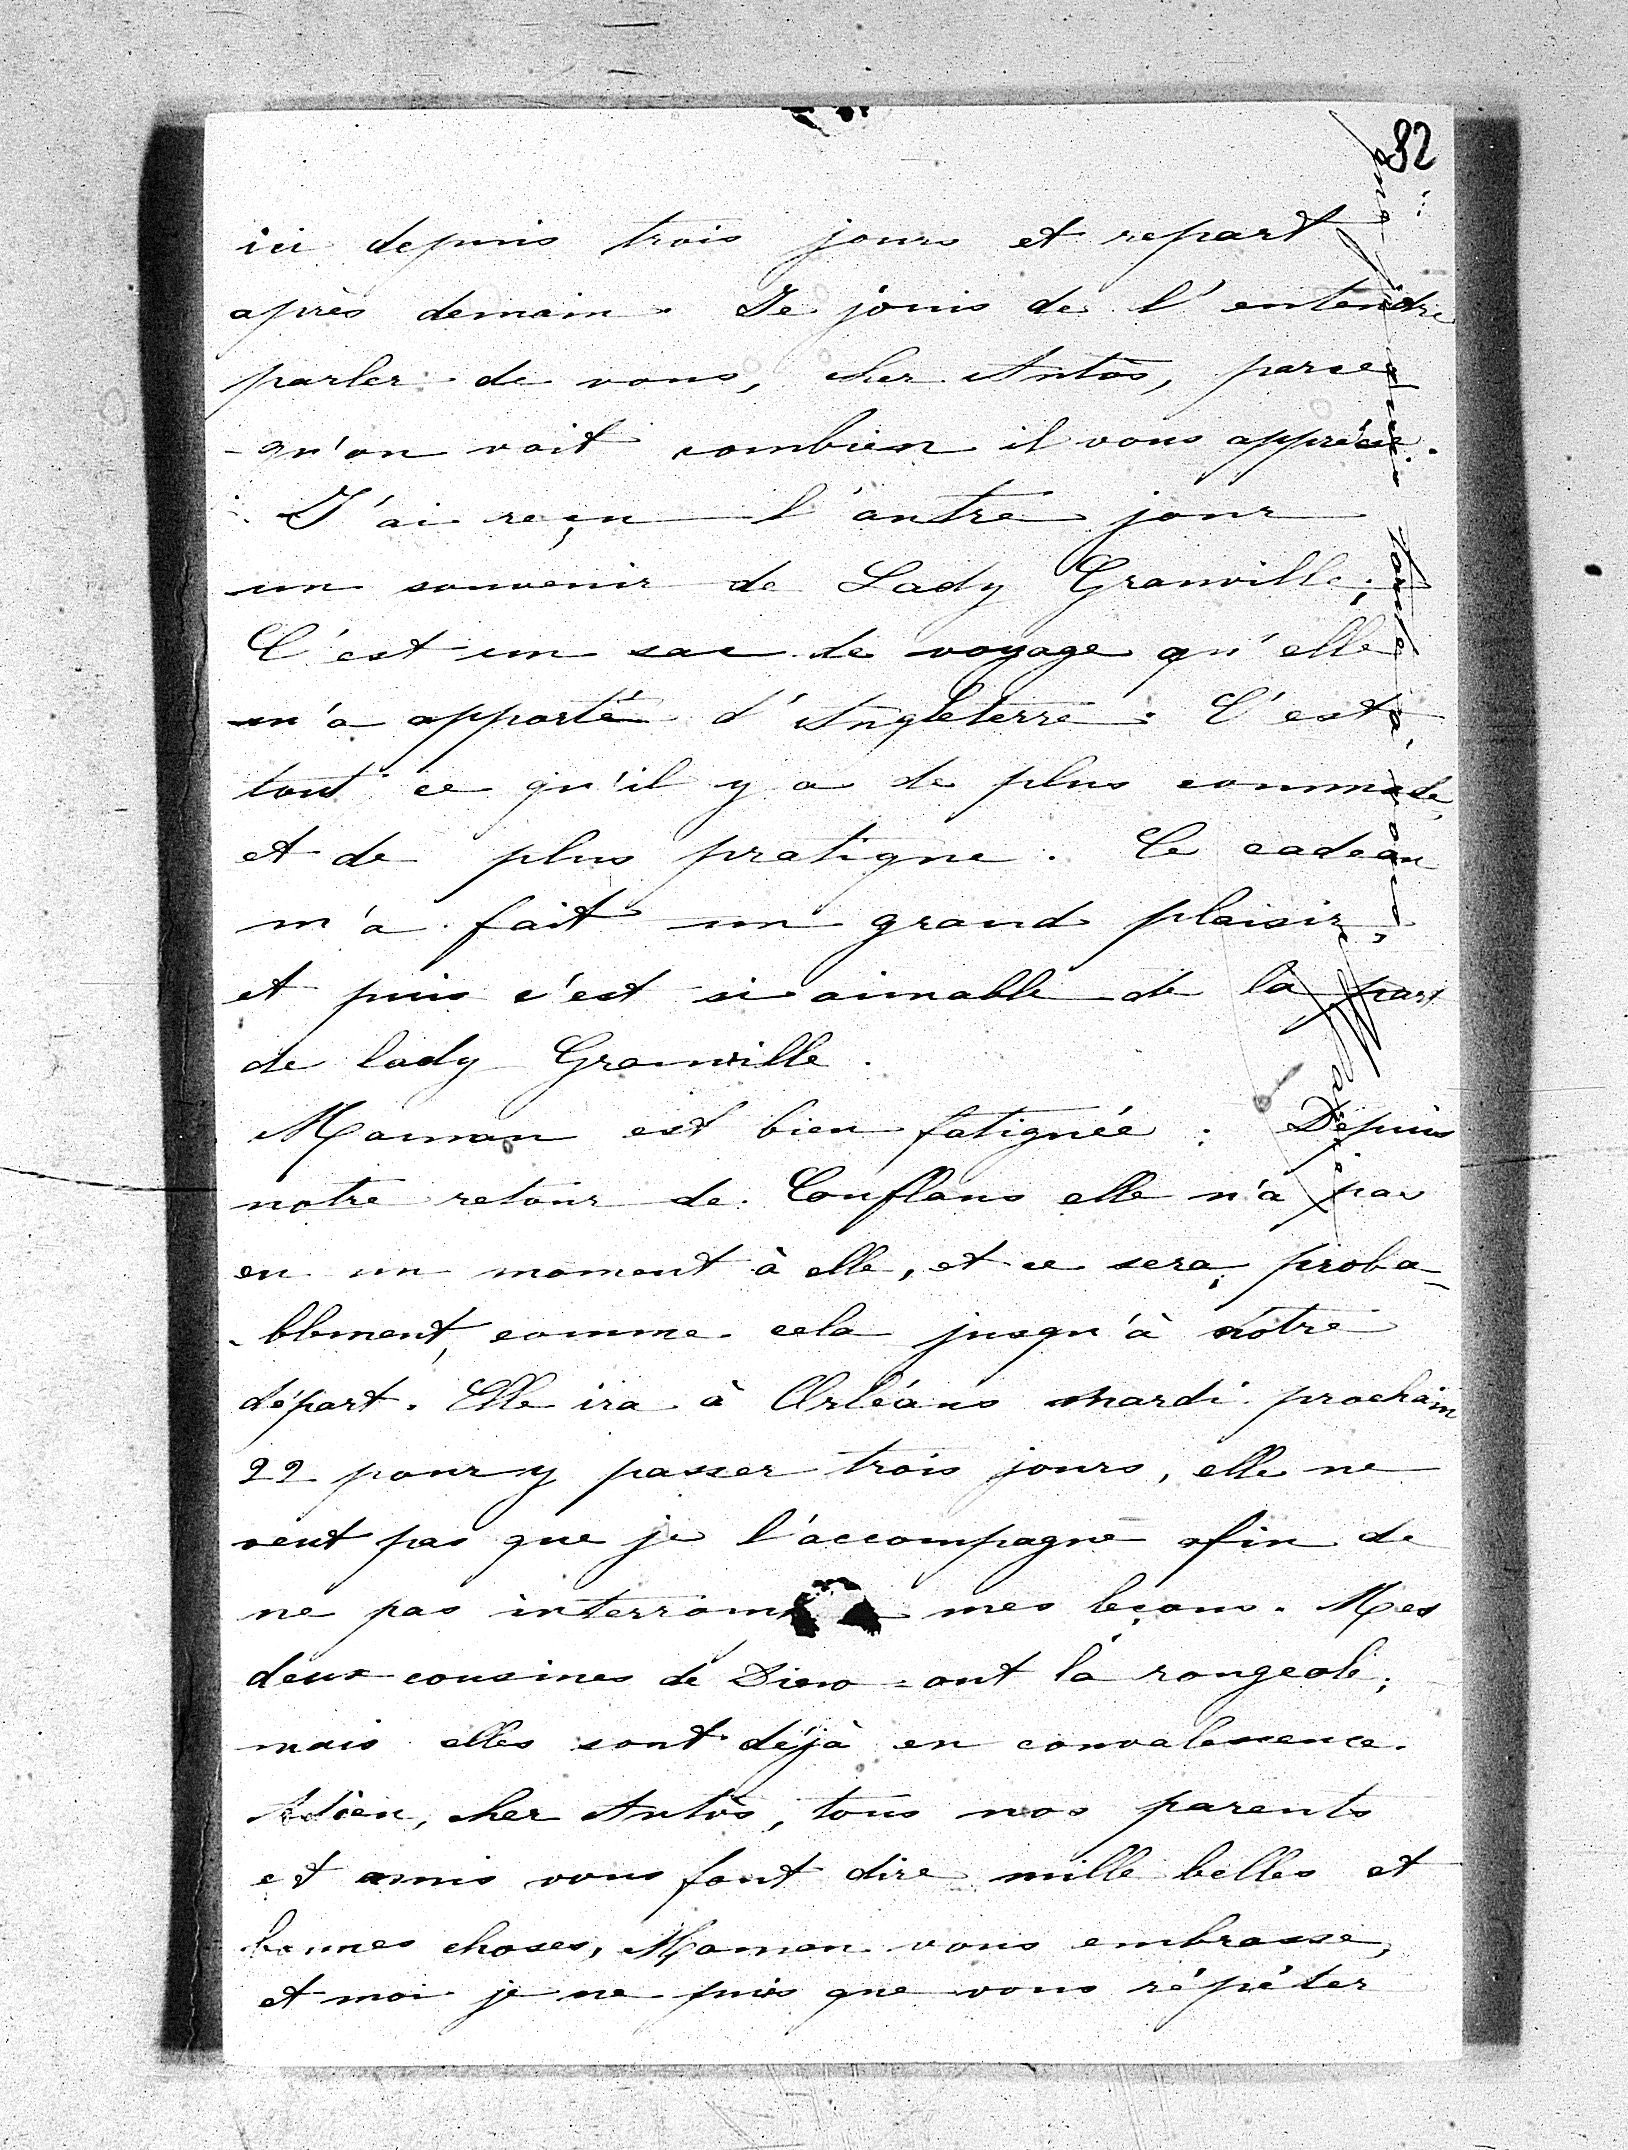 82
ici depuis trois jours et repart
après demain. Je jouis de l'entendre
parler de vous, cher Antos, parce
qu'on voit combien il vous apprécie.
J'ai reçu l'autre jour
un souvenir de Lady Granville;
C'est un sac de voyage qu'elle
m'a apporté d'Angleterre. C'est
tout ce qu'il y a de plus commode,
et de plus pratique. Ce cadeau
m'a fait un grand plaisir,
et puis c'est si aimable de la part
de lady Granville.
Maman est bien fatiguée : Depuis
notre retour de Conflans elle n'a pas
eu un moment à elle, et ce sera, proba-
-blement, comme cela jusqu'à nôtre
départ. Elle ira à Orléans mardi prochain
22 pour y passer trois jours, elle ne
veut pas que je l'accompagne afin de
ne pas interrom mes leçons. Mes
deux cousines de ont la rougeole;
mais elles sont déjà en convalescence.
Adieu, cher Antos, tous nos parents
et amis vous font dire mille belles et
bonnes choses, Maman vous embrasse,
et moi je ne puis que vous répéter